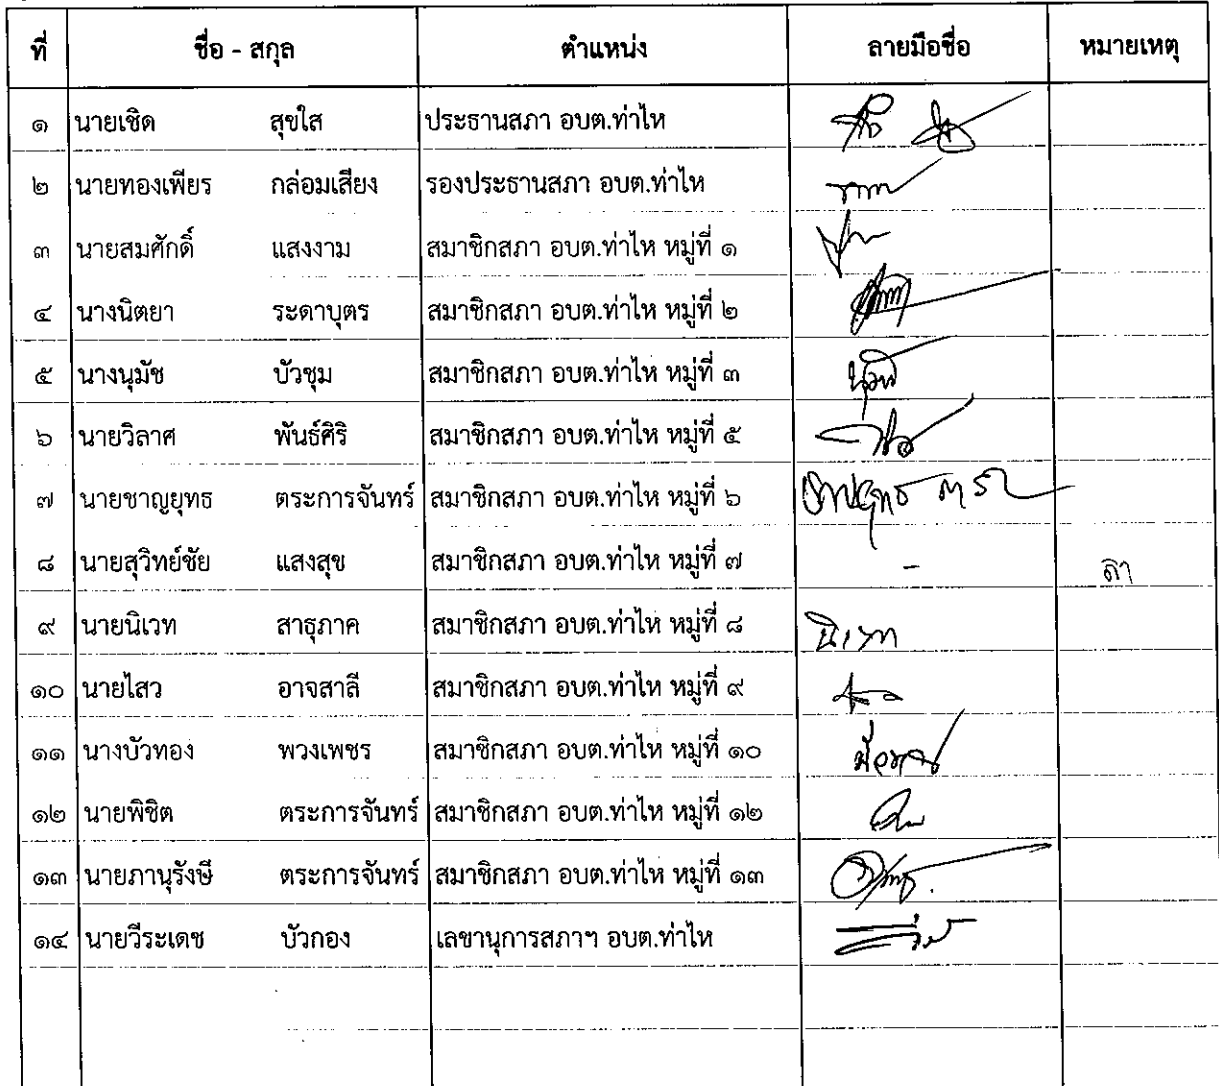 ที่ ชื่อ - สกุล ตำแหน่ง ลายมือชื่อ หมายเหตุ
๑ นายเชิด สุขใส ประธานสภา อบต.ท่าไห
๒ นายทองเพียร กล่อมเสียง รองประธานสภา อบต.ท่าไห
๓ นายสมศักดิ์ แสงงาม สมาชิกสภา อบต.ท่าไห หมู่ที่ ๑
๔ นางนิตยา ระดาบุตร สมาชิกสภา อบต.ท่าไห หมู่ที่ ๒
๕ นางนุมัช บัวชุม สมาชิกสภา อบต.ท่าไห หมู่ที่ ๓
๖ นายวิลาศ พันธ์ศิริ สมาชิกสภา อบต.ท่าไห หมู่ที่ ๕
๗ นายชาญยุทธ ตระการจันทร์ สมาชิกสภา อบต.ท่าไห หมู่ที่ ๖ ชาญยุทธ
๘ นายสุวิทย์ชัย แสงสุข สมาชิกสภา อบต.ท่าไห หมู่ที่ ๗ - ลา
๙ นายนิเวท สาธุภาค สมาชิกสภา อบต.ท่าไห หมู่ที่ ๘ นิเวท
๑๐ นายไสว อาจสาลี สมาชิกสภา อบต.ท่าไห หมู่ที่ ๙
๑๑ นางบัวทอง พวงเพชร สมาชิกสภา อบต.ท่าไห หมู่ที่ ๑๐
๑๒ นายพิชิต ตระการจันทร์ สมาชิกสภา อบต.ท่าไห หมู่ที่ ๑๒
๑๓ นายภานุรังษี ตระการจันทร์ สมาชิกสภา อบต.ท่าไห หมู่ที่ ๑๓
๑๔ นายวีระเดช บัวกอง เลขานุการสภาฯ อบต.ท่าไห